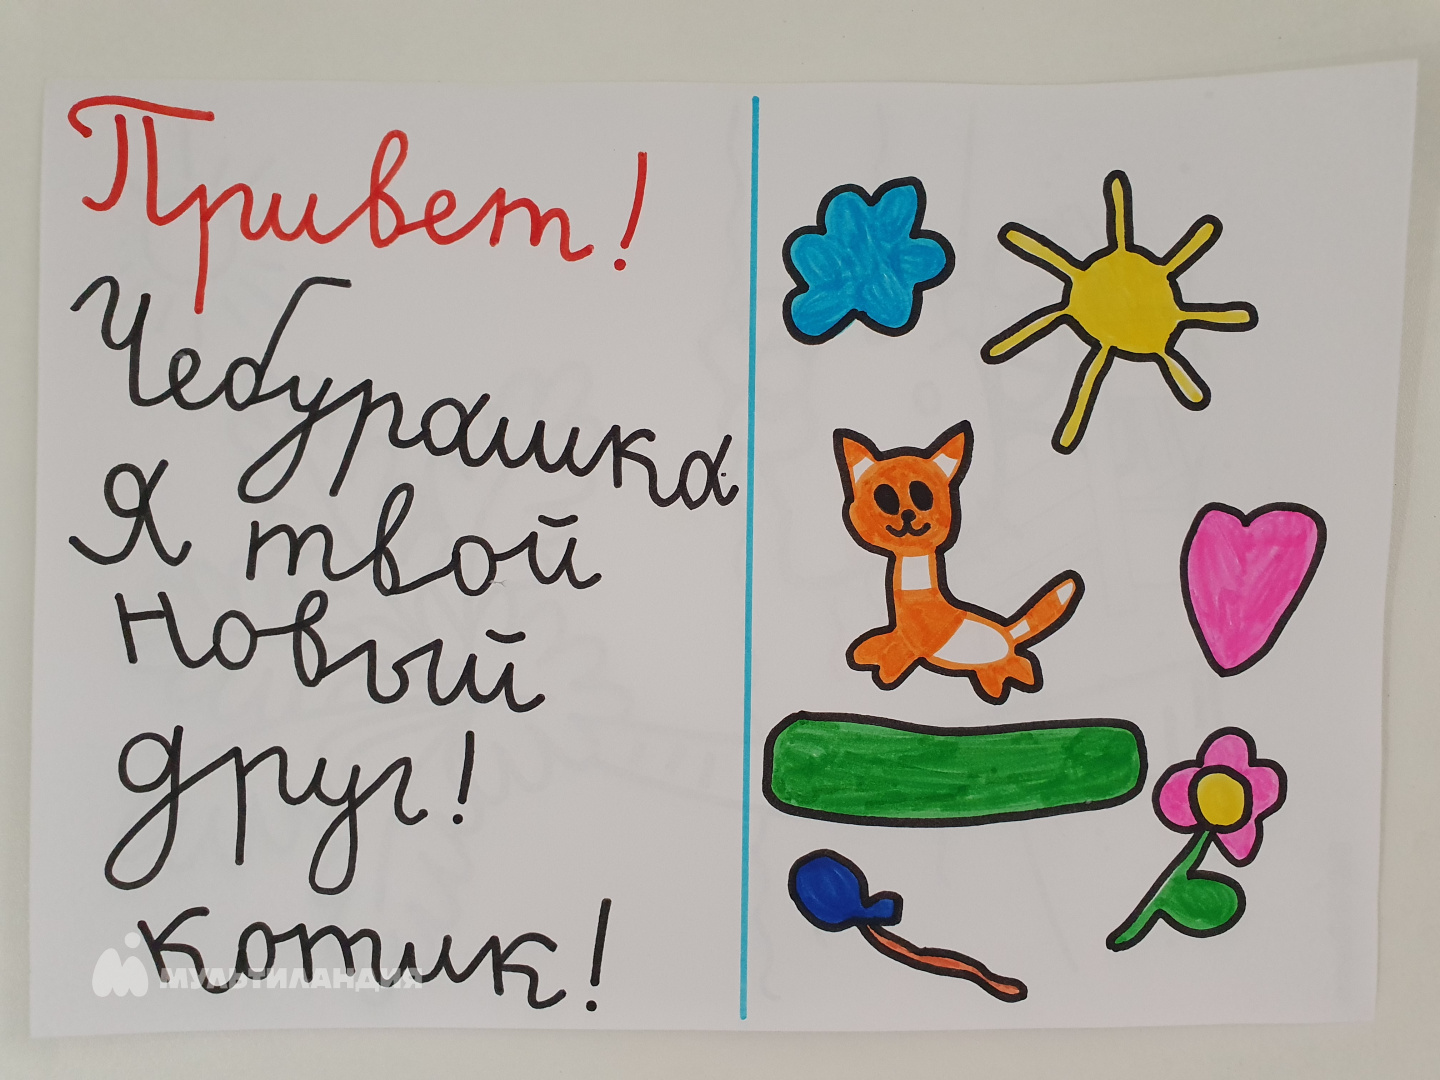 Привет!
Чебурашка
Я твой
Новый
друг!
котик!
МУЛЬТИЛАНДИЯ